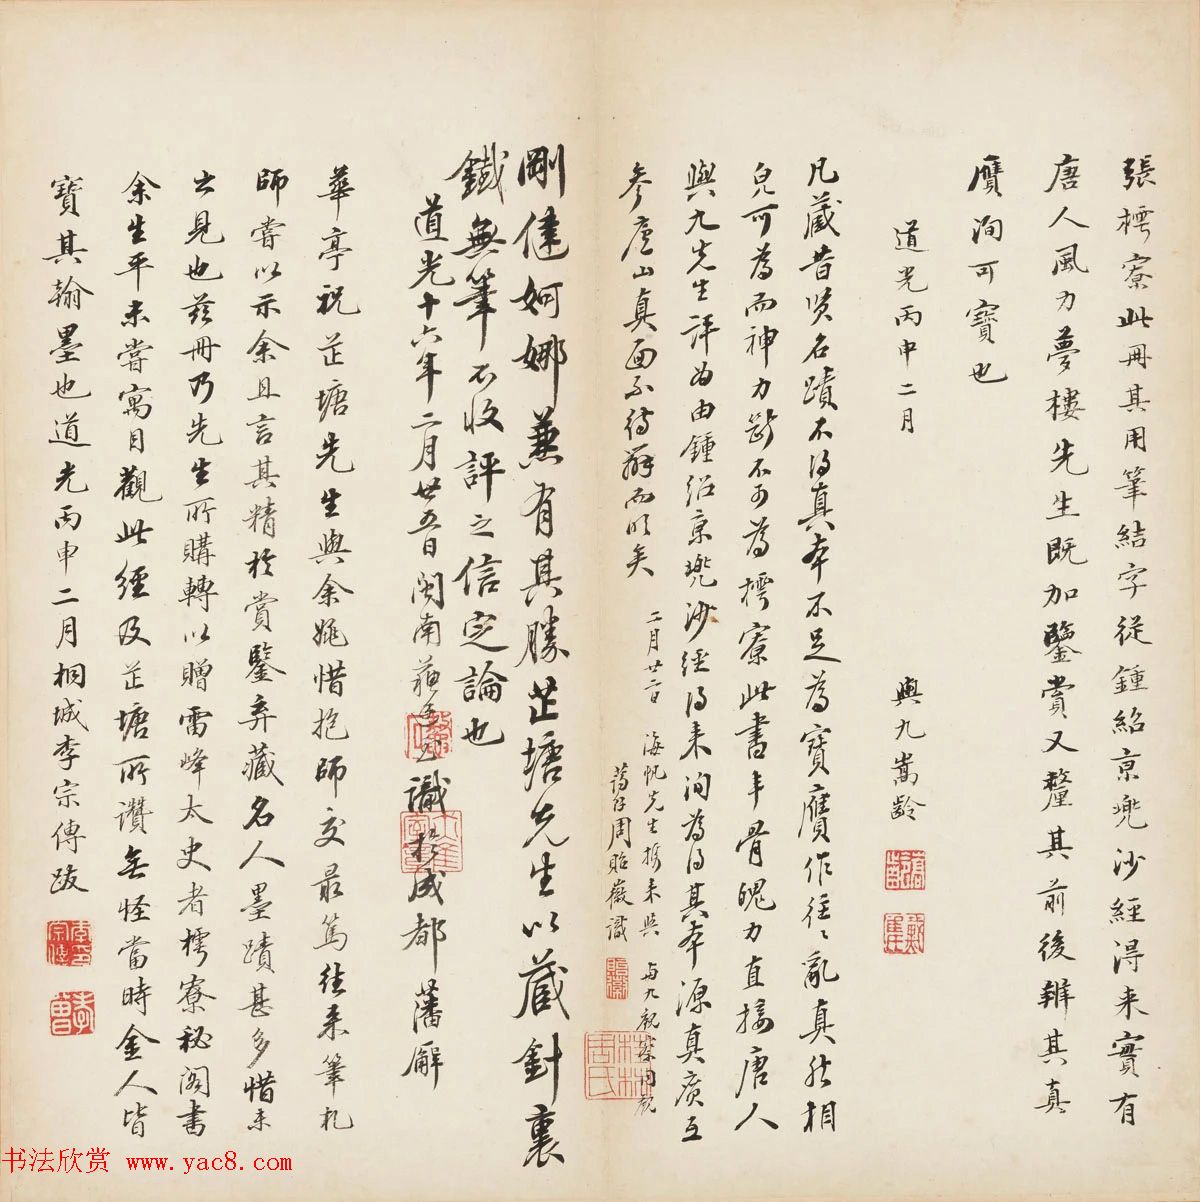 張樗寮此冊其用筆結字從鍾紹京兜沙經得来實有
唐人風力夢樓先生既加鑒賞又釐其前後辨其真
贋洵可寶也
道光丙申二月
輿九嵩齡
凡藏昔贤名蹟不得真本不足為寶贋作往〻亂真然相
皃可為而神力斷不可為樗寮此書丰骨魄力直接唐人
與九先生評为由鍾绍京兜沙經得来洵為得其本源真廣互
参庐山真面不待辭而明矣
二月廿二日 海帆先生携来與 与九観察同観
周貽徽識
剛健婀娜兼有其勝芷塘先生以蔵針裏
鐵無筆不收評之信定論也
道光十六年二月廿五日閩南蘇 識於成都藩廨
華亭祝芷塘先生與余姚惜抱師交最篤往来筆札
師嘗以示余且言其精於賞鑒弆藏名人墨蹟甚多惜未
之見也茲冊乃先生所購轉以贈雷峰太史者樗寮秘阁書
余生平未嘗寓目觀此經及芷塘所讚無怪當時金人皆
寶其翰墨也道光丙申二月桐城李宗傳跋
书法欣赏 www.yac8.com